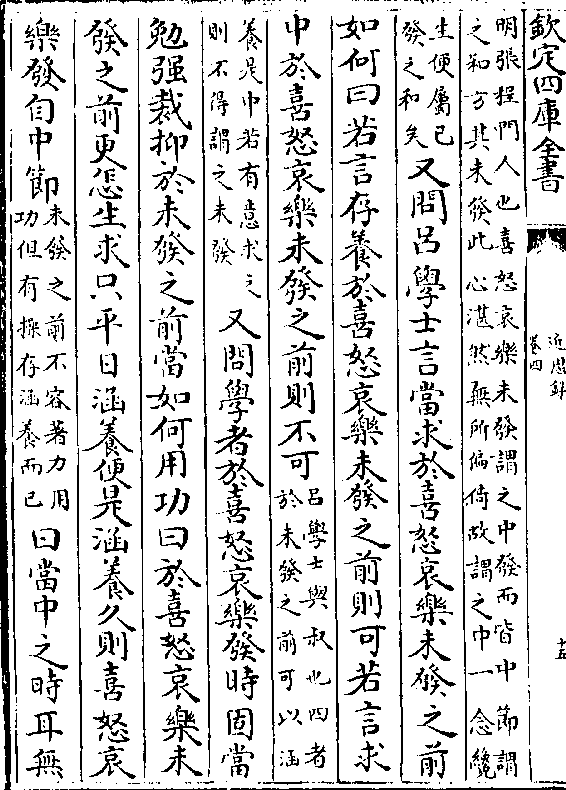 欽定四庫全書
近思録
卷四
十五
明張程門人也喜怒哀樂未發謂之中發而皆中節謂
之和方其未發此心湛然無所偏倚故謂之中一念纔
生便屬已
發之和矣
又問呂學士言當求於喜怒哀樂未發之前
如何曰若言存養於喜怒哀樂未發之前則可若言求
中於喜怒哀樂未發之前則不可
呂學士與叔也四者
於未發之前可以涵
養是中若有意求之
則不得謂之未發
又問學者於喜怒哀樂發時固當
勉强裁抑於未發之前當如何用功曰於喜怒哀樂未
發之前更怎生求只平日涵養便是涵養久則喜怒哀
樂發自中節
未發之前不容著力用
功但有操存涵養而已
曰當中之時耳無